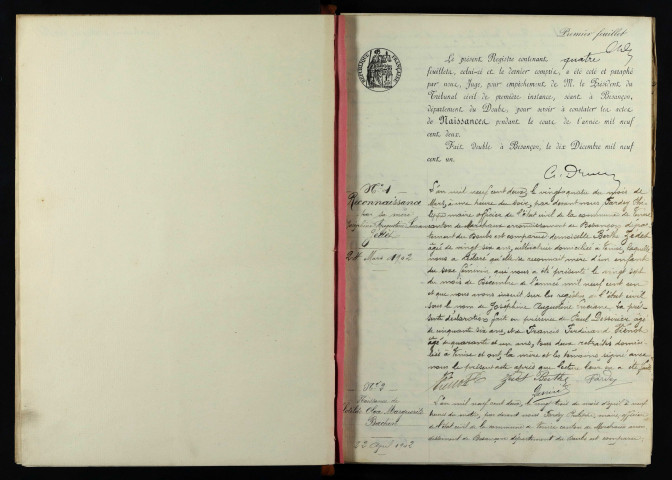 Premier feuillet
Le présent Registre contenant quatre
feuillets, celui-ci et le dernier compris, a été coté et paraphé
par nous, Juge, pour empêchement de M. le Président du
Tribunal civil de première instance, séant à Besançon,
département du Doubs, pour servir à constater les actes
de Naissances pendant le cours de l'année mil neuf
cent deux.
Fait double à Besançon, le dix Décembre mil neuf
cent un.
RÉPUBLIQUE FRANÇAISE
N° 1
Reconnaissance
par sa mère
Joséphine Augustine
24 Mars 1902
L'an mil neuf cent deux, le vingt quatre du mois de
Mars, à une heure du soir, par devant nous Fardey
maire officier de l'état civil de la commune de
canton de Marchaux arrondissement de Besançon dépar-
tement du Doubs est comparue demoiselle Berthe
âgée de vingt six ans, domiciliée à laquelle
nous a déclaré qu'elle se reconnaît mère d'un enfant
du sexe féminin qui nous a été présenté le vingt sept
du mois de Décembre de l'année mil neuf cent un
et que nous avons inscrit sur les registres de l'état civil
sous le nom de Joséphine Augustine La pré-
sente déclaration fait en présence de Paul âgé
de cinquante six ans, et de Francis Ferdinand
âgé de quarante et un ans, tous deux retraités domici-
liés à et ont, la mère et les témoins signé avec
nous le présent acte après que lecture leur en a été faite
Berthe Fardey
N° 2
Naissance de
Clara Marguerite
23 Avril 1902
L'an mil neuf cent deux, le vingt trois du mois d'Avril à
heure du matin, par devant nous Fardey maire, officier
de l'état civil de la commune de canton de Marchaux arron-
dissement de Besançon département du Doubs est comparu